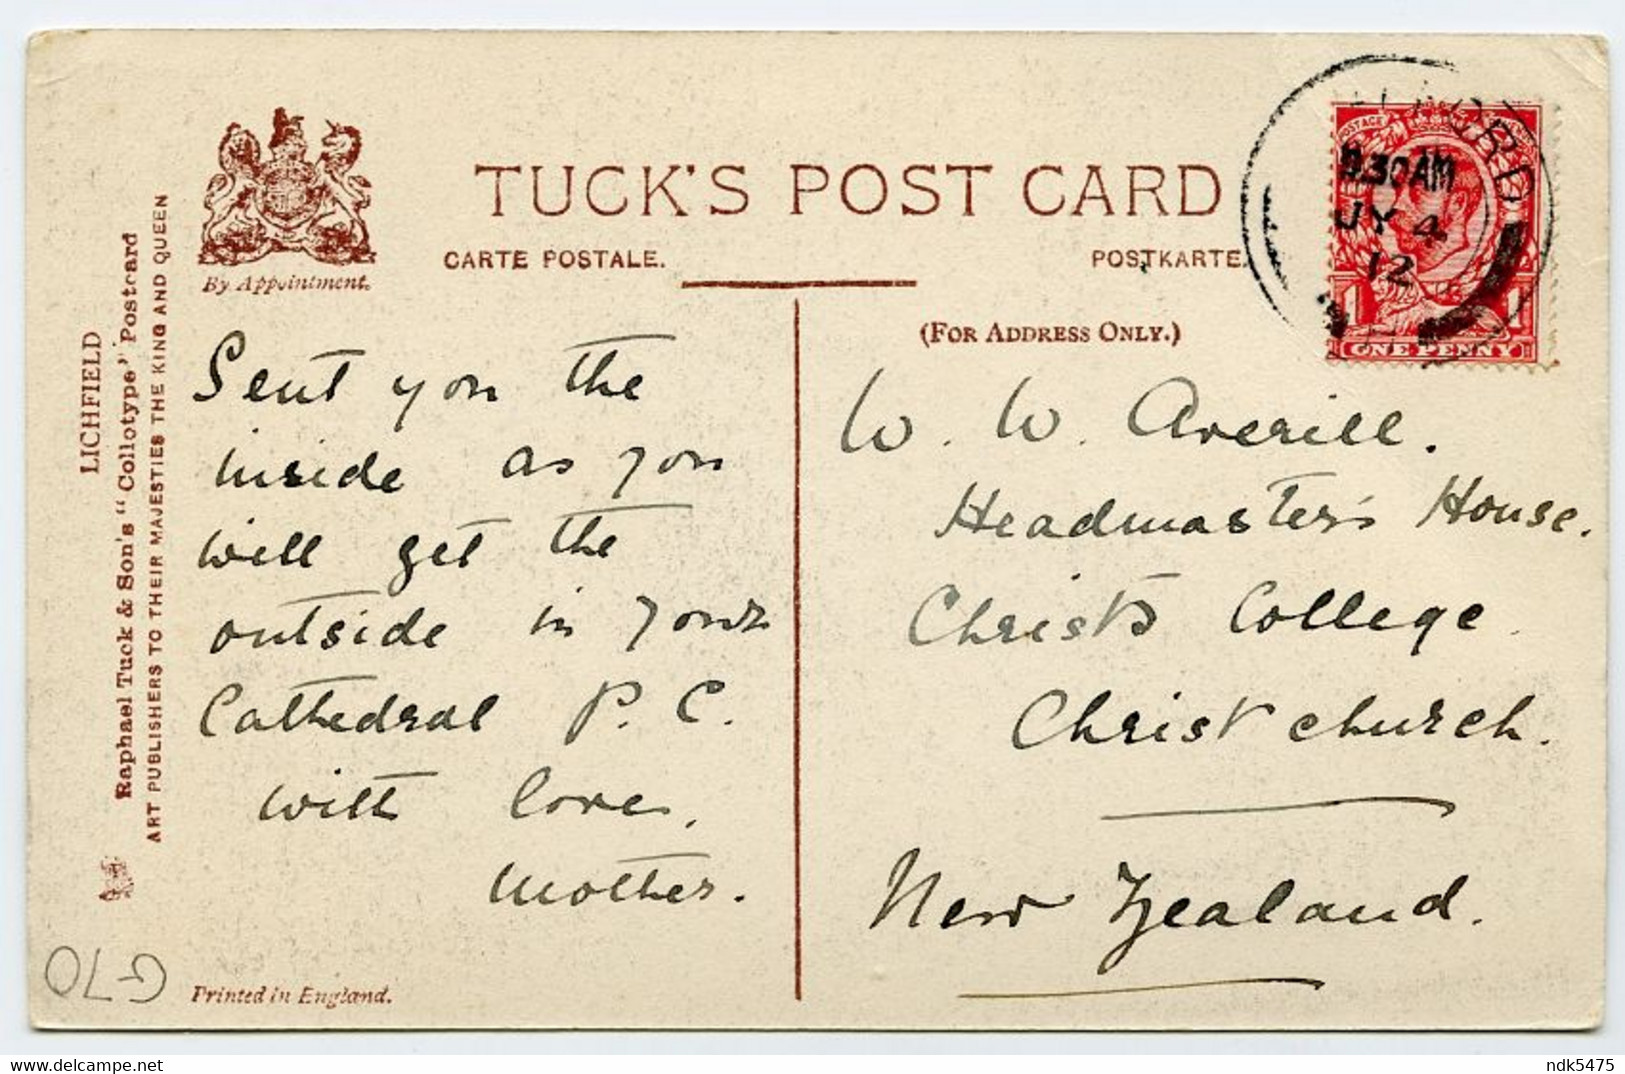 TUCK'S POST CARD
CARTE POSTALE.
POSTKARTE.
By Appointment.
(FOR ADDRESS ONLY.)
LICHFIELD
Raphael Tuck & Son's "Collotype" Postcard
ART PUBLISHERS TO THEIR MAJESTIES THE KING AND QUEEN
Sent you the
inside as you
will get the
outside in your
Cathedral P. C.
with love,
Mother.
W. W. Averill.
Headmaster's House.
Christ's College
Christchurch.
New Zealand.
POSTAGE
30AM
JY 4
12
1 1
ONE PENNY
Printed in England.
ndk5475